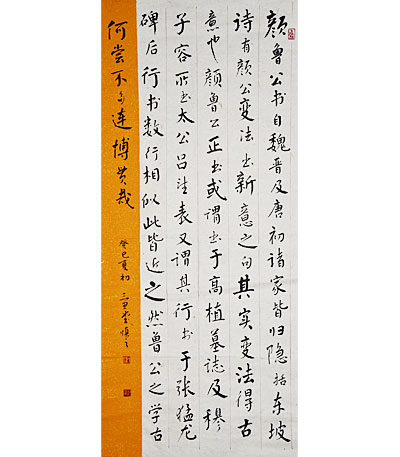 颜鲁公书自魏晋及唐初诸家皆归隐括东坡
诗有颜公变法出新意之句其实变法得古
意也颜鲁公正书或谓出于高植墓志及穆
子容所书太公吕望表又谓其行书于张猛龙
碑后行书数行相似此皆近之然鲁公之学古
何尝不多连博贯哉
癸巳夏初 三 堂慎之